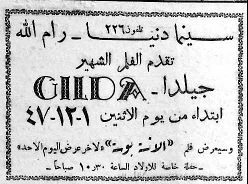 سينما دنيا تلفون ٢٢٦ - رام الله
تقدم الفلم الشهير
جيلدا - GILDA
ابتداء من يوم الاثنين ١-١٢-٤٧
وسيعرض فلم «الارنس بوبة» لاخر عرض اليوم الاحد
- حفلة خاصة للاولاد الساعة ١٠،٣٠ صباحاً -